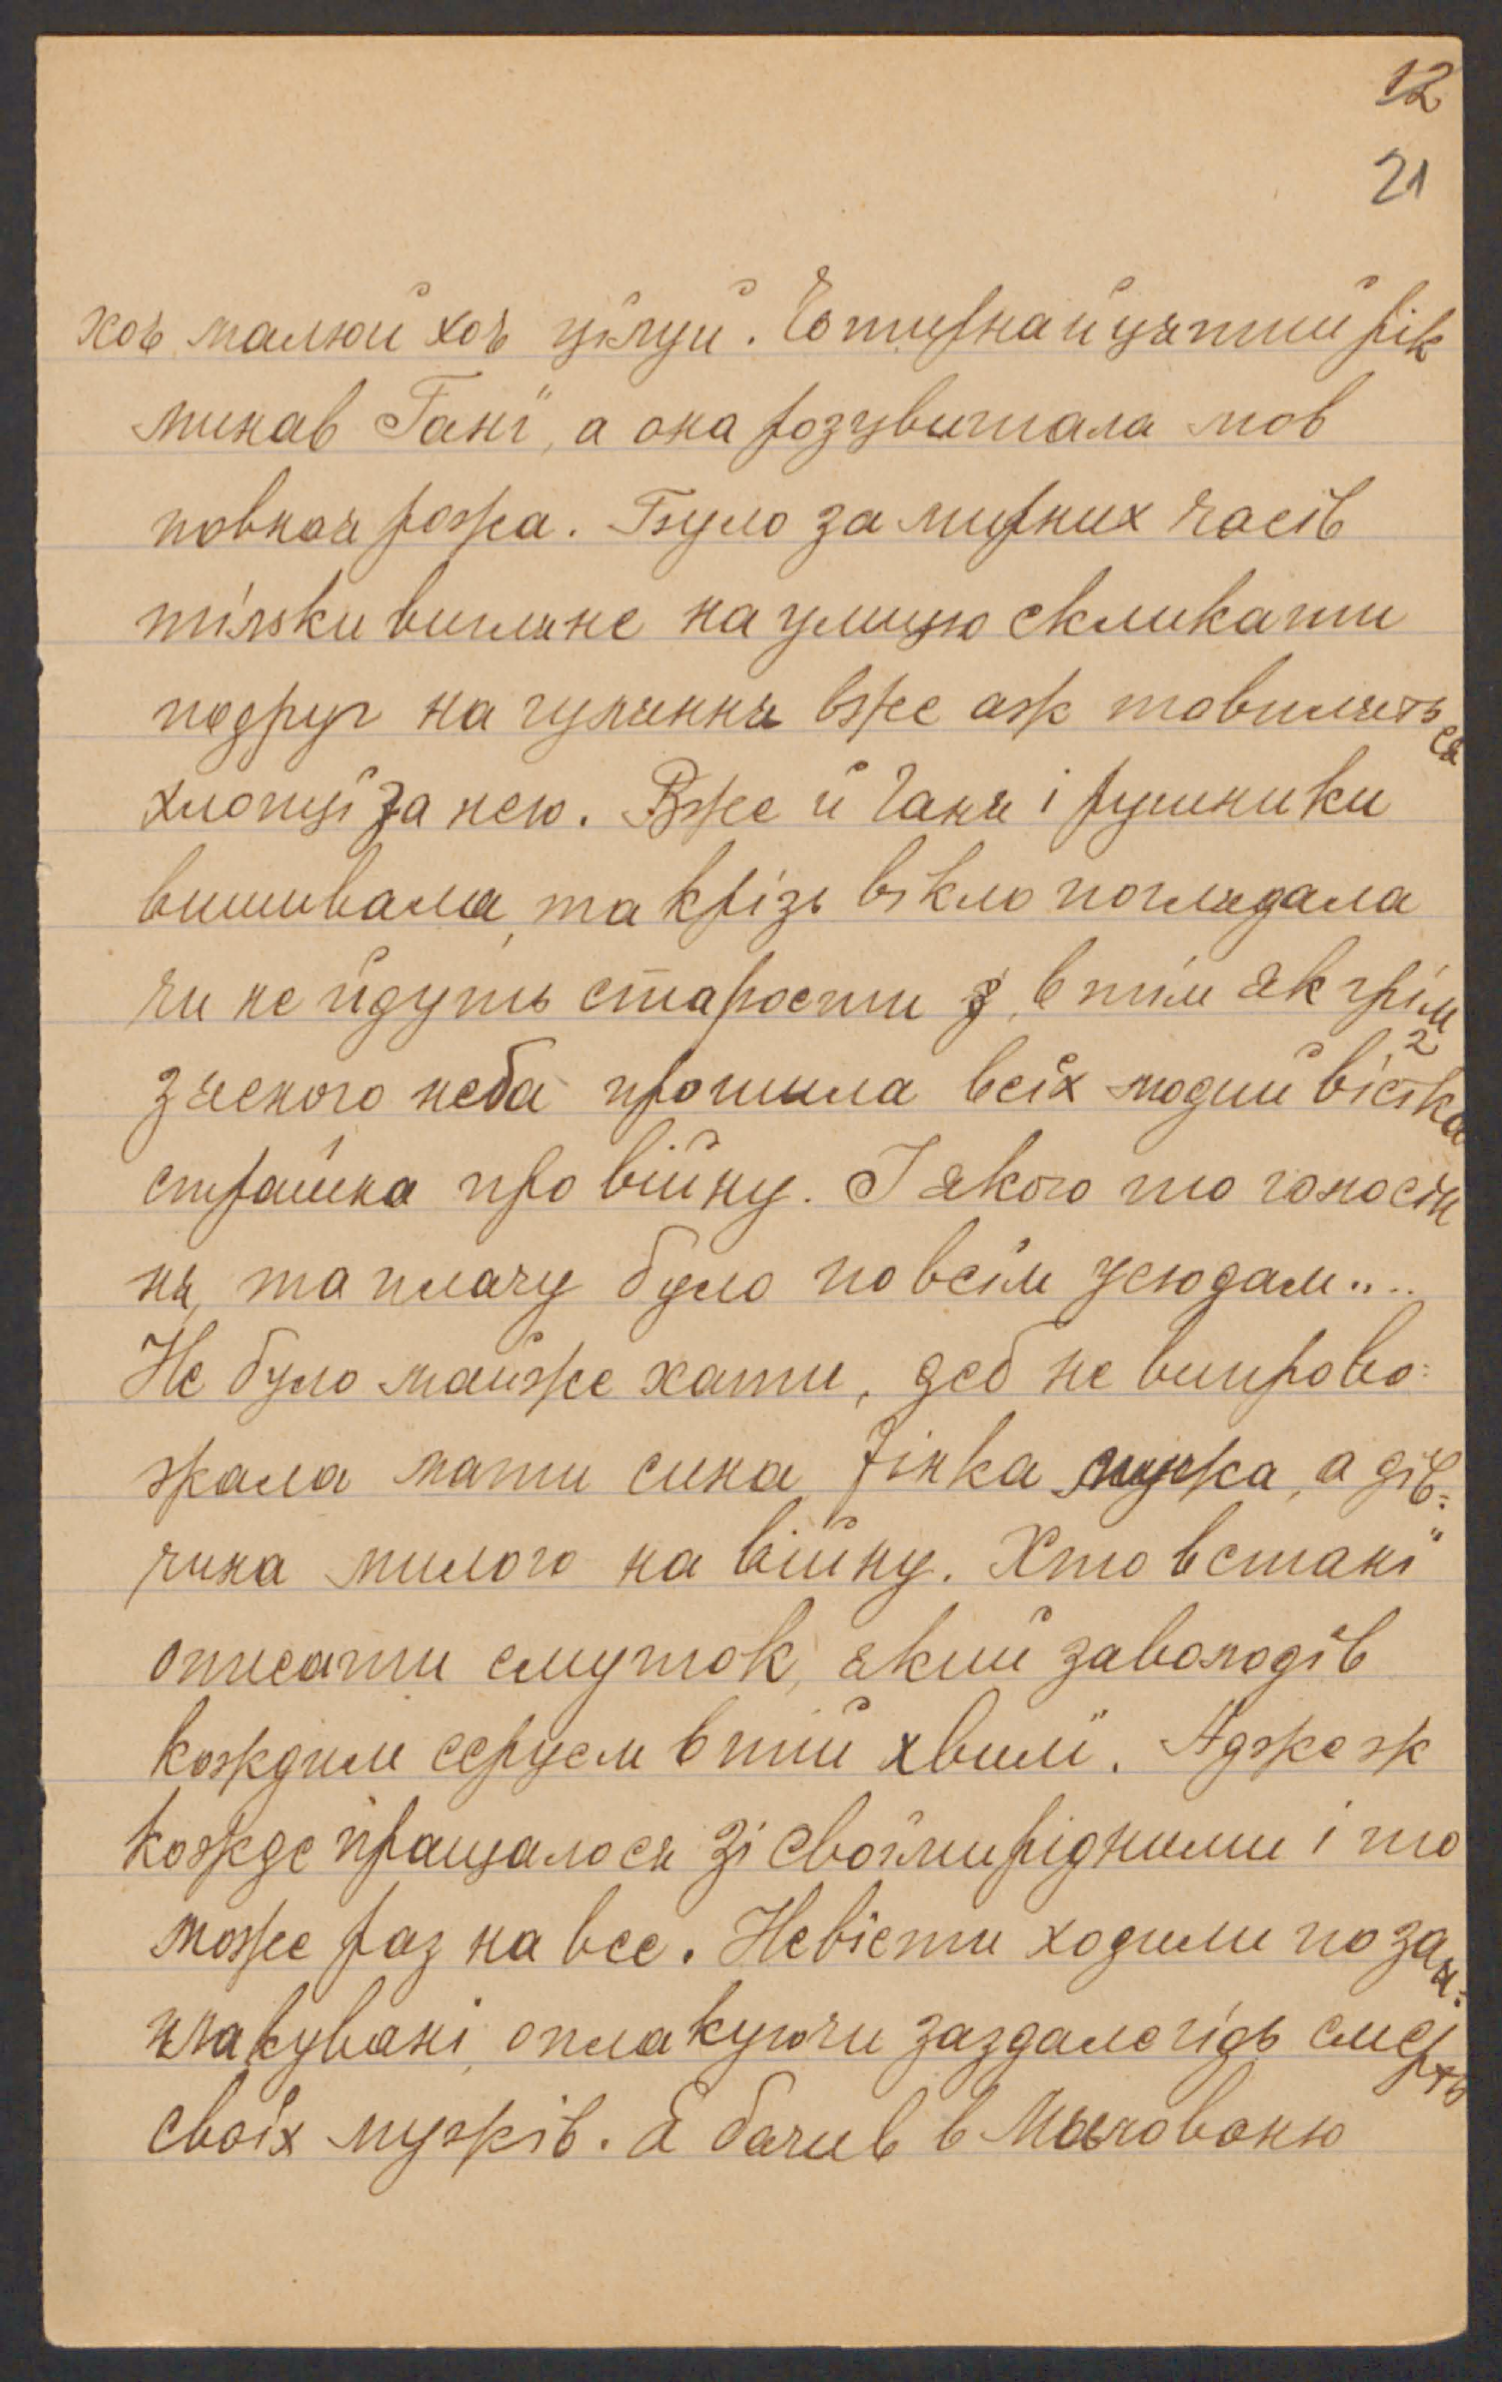 12
21
хоч малюй хоч цілуй. Чотирнайцятий рік
минав Гані, а она розцвитала мов
повная рожа. Було за мирних часів
тілзки вигляне на улицю скликати
подруг на гуляння вже аж товпляться
хлопці за нею. Вже й Ганя і рушники
вишивала, та крізь вікло поглядала
чи не йдуть старости з, втім як грім
з ясного неба прошила всіх людий вістка 2
страшна про війну. І якого то голосін
ня, та плачу було по всім усюдам....
Не було майже хати, деб не випрово-
жала мати сина жінка мужа, а дів-
чина милого на війну. Хто встані
описати смуток, який заволодів
кождим серцем в тій хвилі. Аджеж
кожде пращалося зі своїми рідними і то
може раз на все. Невісти ходили поза-
плакувані, оплакуючи заздалегідь смерть
своїх мужів. Я бачив в